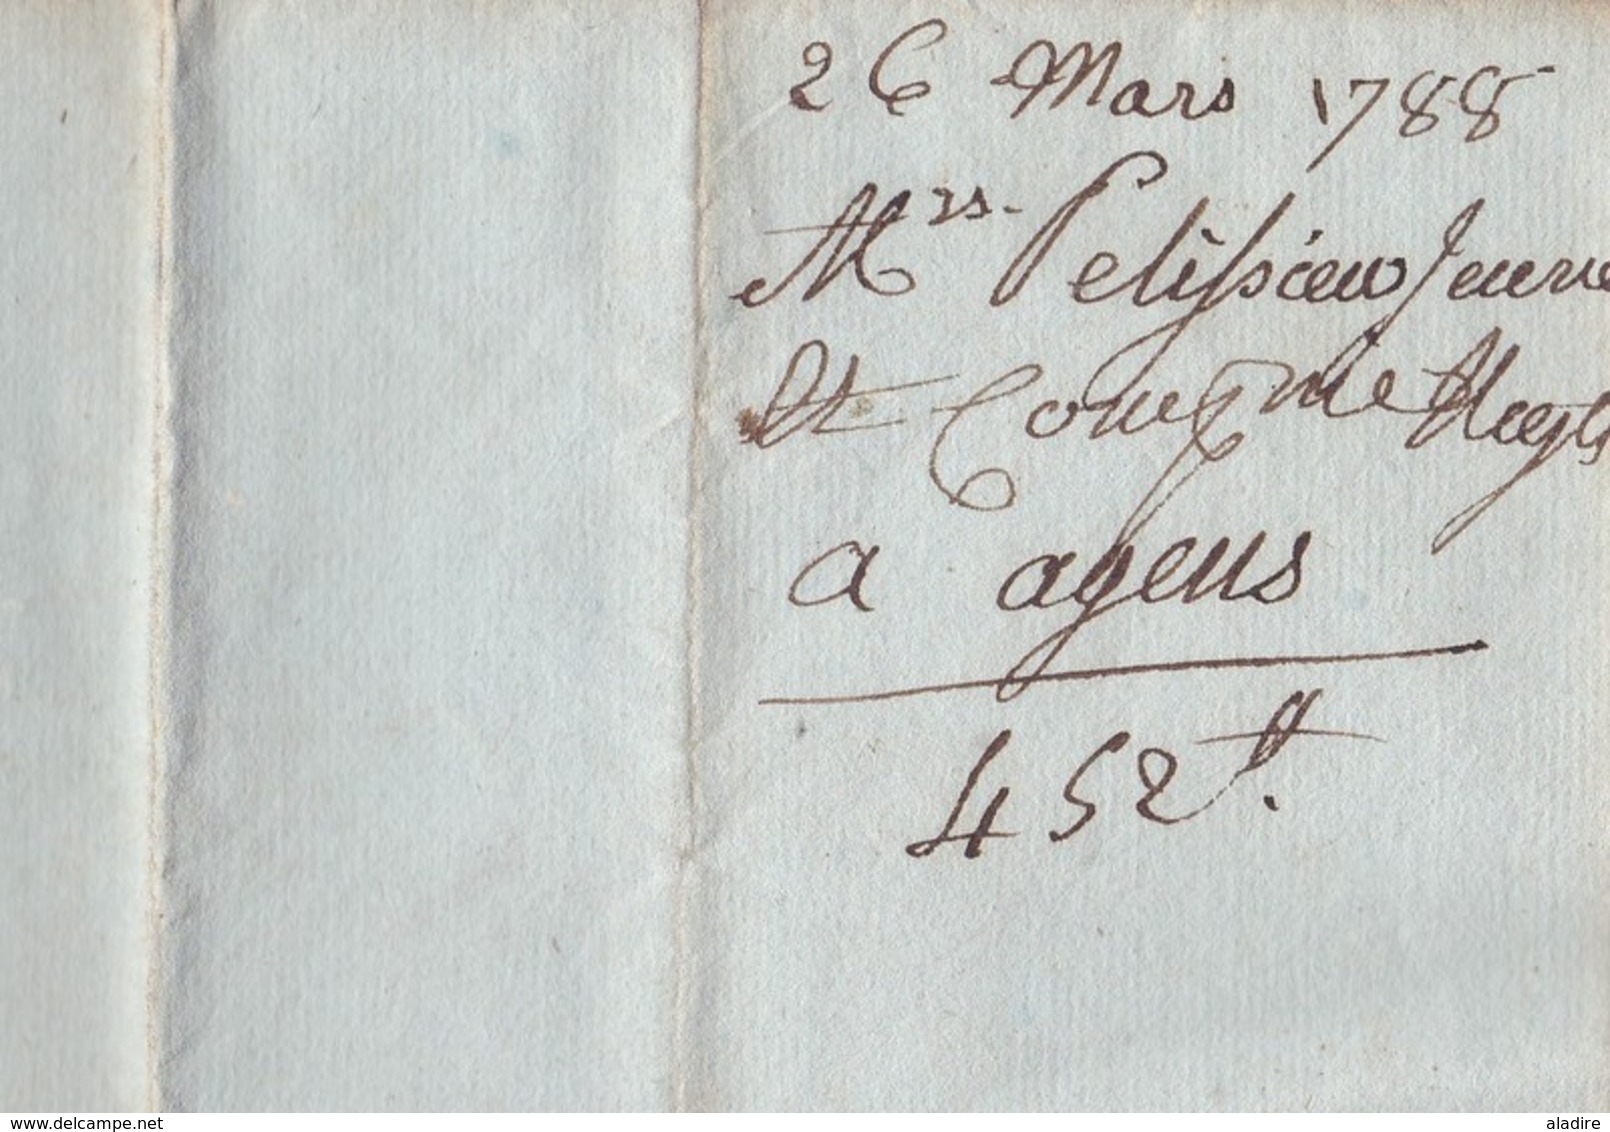 26 Mars 1788
Mrs. Pelissieu Jeune
Et Compnie
a agens
452 ₶.
www.delcampe.net
aladire